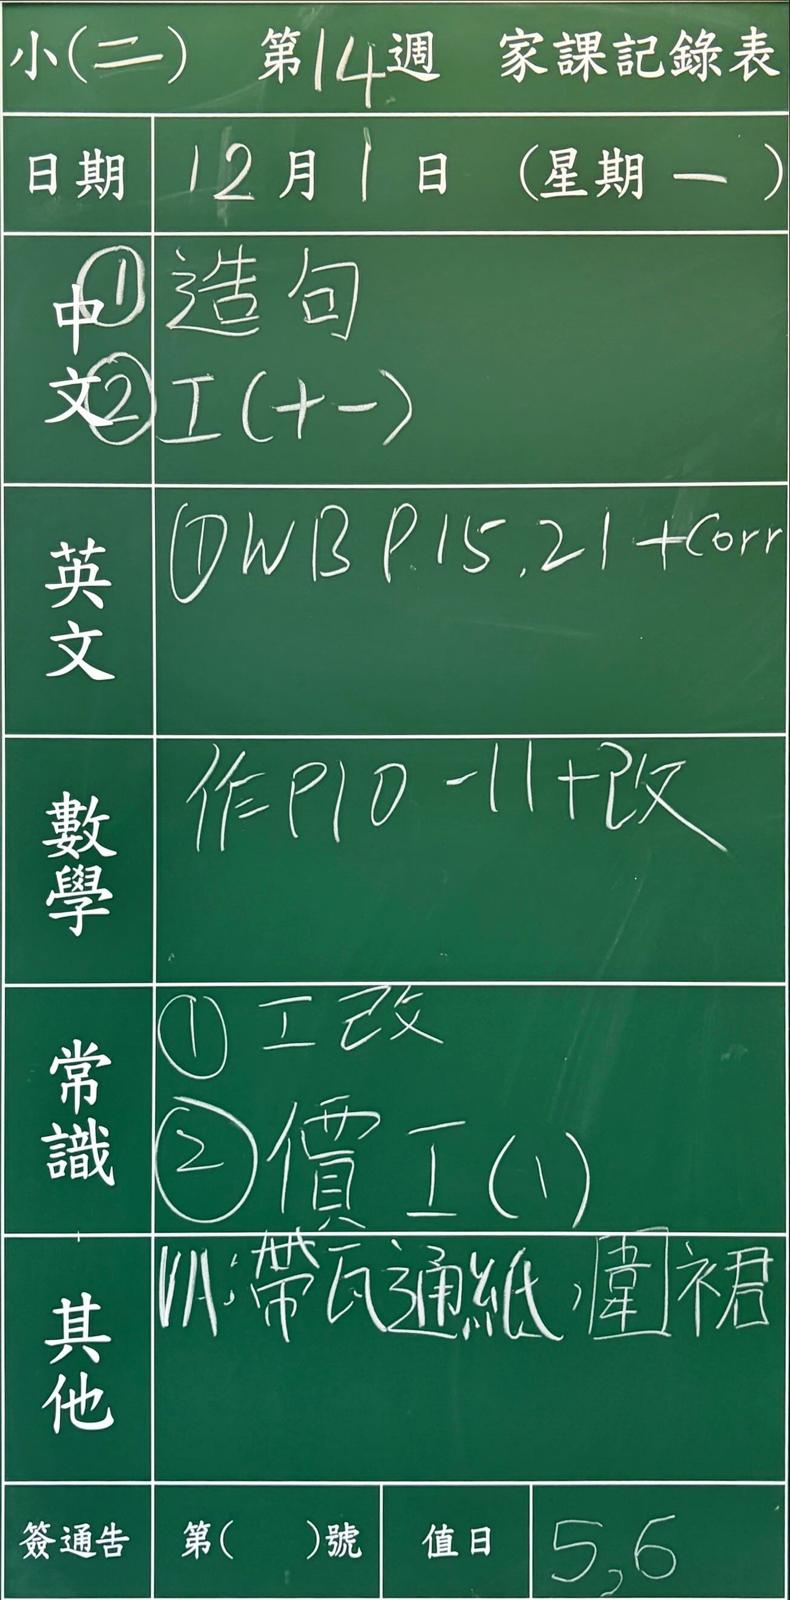 小(二) 第14週 家課記錄表
日期 12月1日 (星期一)
中文 ①造句
②工(十一)
英文 ①WB P.15,21+Corr
數學 作P10-11+改
常識 ①工改
②價工(1)
其他 VA:帶瓦通紙,圍裙
簽通告 第( )號 值日 5,6